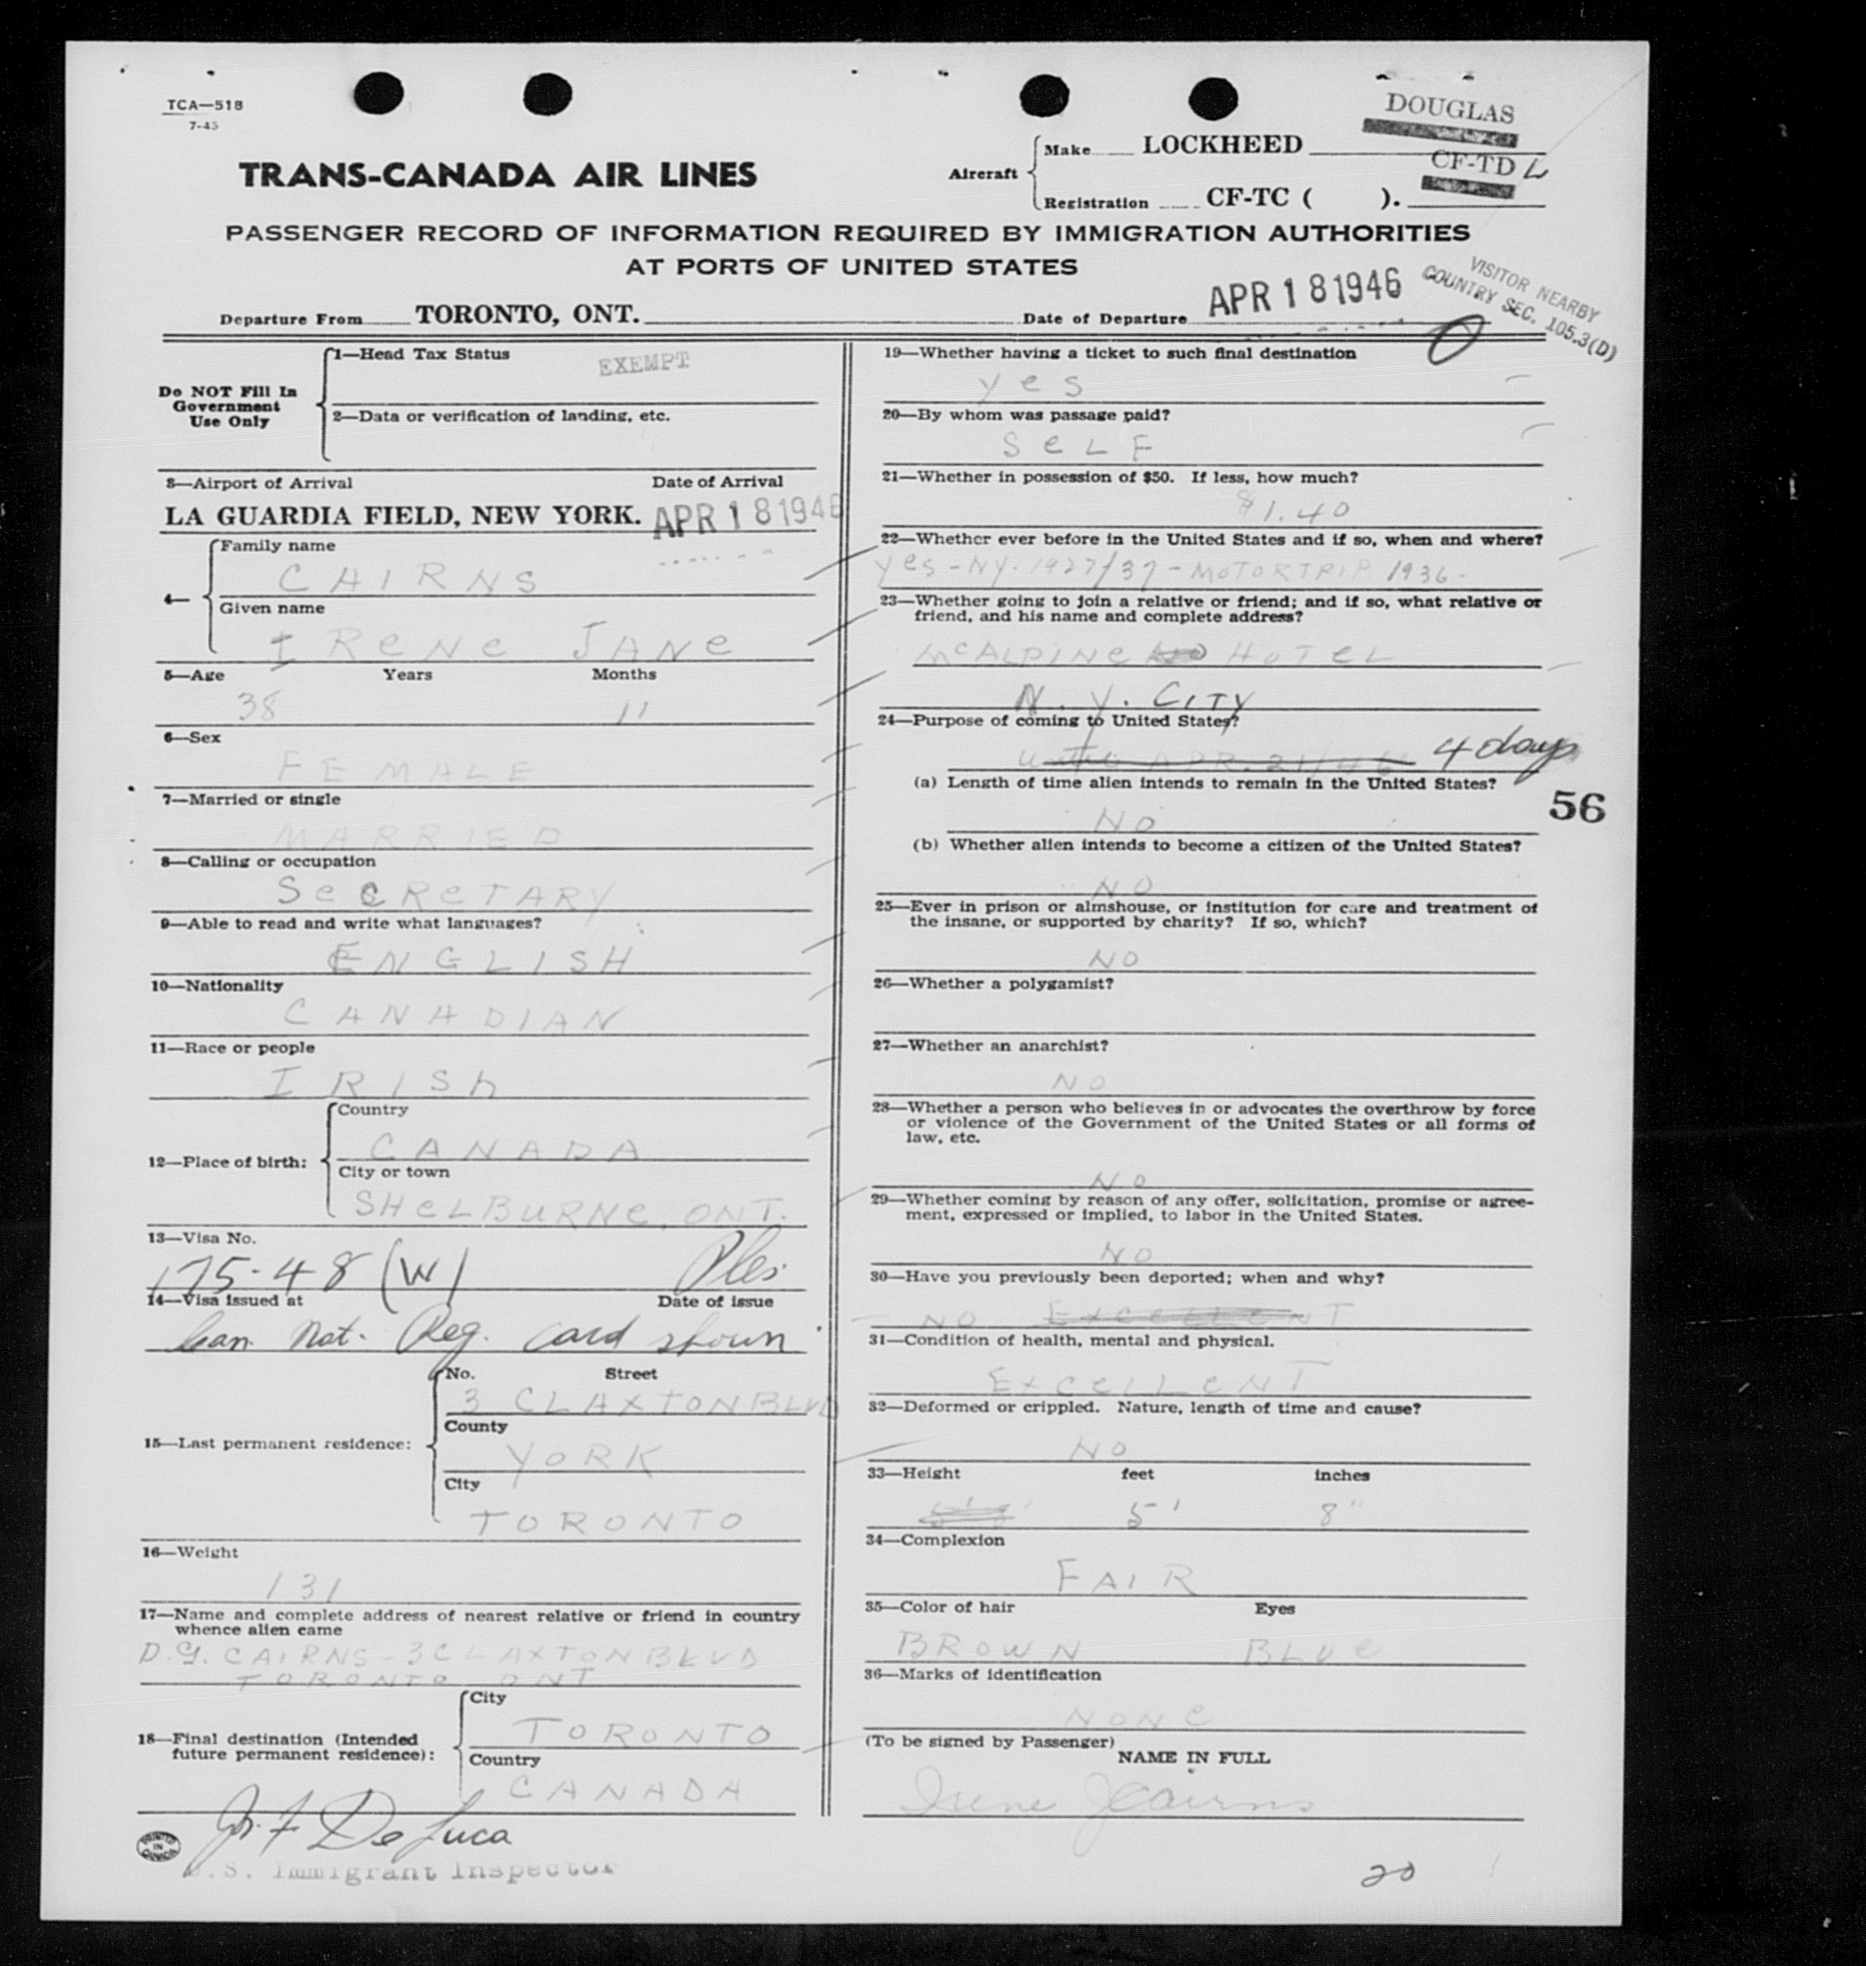 TCA—518
7-45
DOUGLAS
TRANS-CANADA AIR LINES
Aircraft
Make LOCKHEED
CF-TD L
Registration CF-TC ( ).
PASSENGER RECORD OF INFORMATION REQUIRED BY IMMIGRATION AUTHORITIES
AT PORTS OF UNITED STATES
Departure From TORONTO, ONT.
Date of Departure APR 18 1946
VISITOR NEARBY
COUNTRY SEC. 105.3(D)
Do NOT Fill In
Government
Use Only
1—Head Tax Status EXEMPT
2—Data or verification of landing, etc.
3—Airport of Arrival Date of Arrival
LA GUARDIA FIELD, NEW YORK. APR 18 1946
4—
Family name
CAIRNS
Given name
IRENE JANE
5—Age Years Months
38 11
6—Sex
FEMALE
7—Married or single
MARRIED
8—Calling or occupation
SECRETARY
9—Able to read and write what languages?
ENGLISH
10—Nationality
CANADIAN
11—Race or people
IRISh
12—Place of birth:
Country
CANADA
City or town
SHELBURNE, ONT.
13—Visa No.
175-48 (W)
14—Visa issued at Date of issue
Can. Nat. Reg. card shown
15—Last permanent residence:
No. Street
3 CLAXTON BLVD
County
YORK
City
TORONTO
16—Weight
131
17—Name and complete address of nearest relative or friend in country
whence alien came
D.G. CAIRNS - 3 CLAXTON BLVD
TORONTO ONT
18—Final destination (Intended
future permanent residence):
City
TORONTO
Country
CANADA
Jos. F DeLuca
U.S. Immigrant Inspector
PRINTED
IN
CANADA
19—Whether having a ticket to such final destination
yes
20—By whom was passage paid?
SELF
21—Whether in possession of $50. If less, how much?
$1.40
22—Whether ever before in the United States and if so, when and where?
yes - NY. 1927/37 - MOTORTRIP 1936-
23—Whether going to join a relative or friend; and if so, what relative or
friend, and his name and complete address?
McALPINE HOTEL
N.Y. CITY
24—Purpose of coming to United States?
until APR. 21/46 4 days
(a) Length of time alien intends to remain in the United States?
NO
56
(b) Whether alien intends to become a citizen of the United States?
NO
25—Ever in prison or almshouse, or institution for care and treatment of
the insane, or supported by charity? If so, which?
NO
26—Whether a polygamist?
27—Whether an anarchist?
NO
28—Whether a person who believes in or advocates the overthrow by force
or violence of the Government of the United States or all forms of
law, etc.
NO
29—Whether coming by reason of any offer, solicitation, promise or agree-
ment, expressed or implied, to labor in the United States.
NO
30—Have you previously been deported; when and why?
NO EXCELLENT
31—Condition of health, mental and physical.
EXCELLENT
32—Deformed or crippled. Nature, length of time and cause?
NO
33—Height feet inches
5' 8"
34—Complexion
FAIR
35—Color of hair Eyes
BROWN BLUE
36—Marks of identification
NONE
(To be signed by Passenger)
NAME IN FULL
Irene J Cairns
20